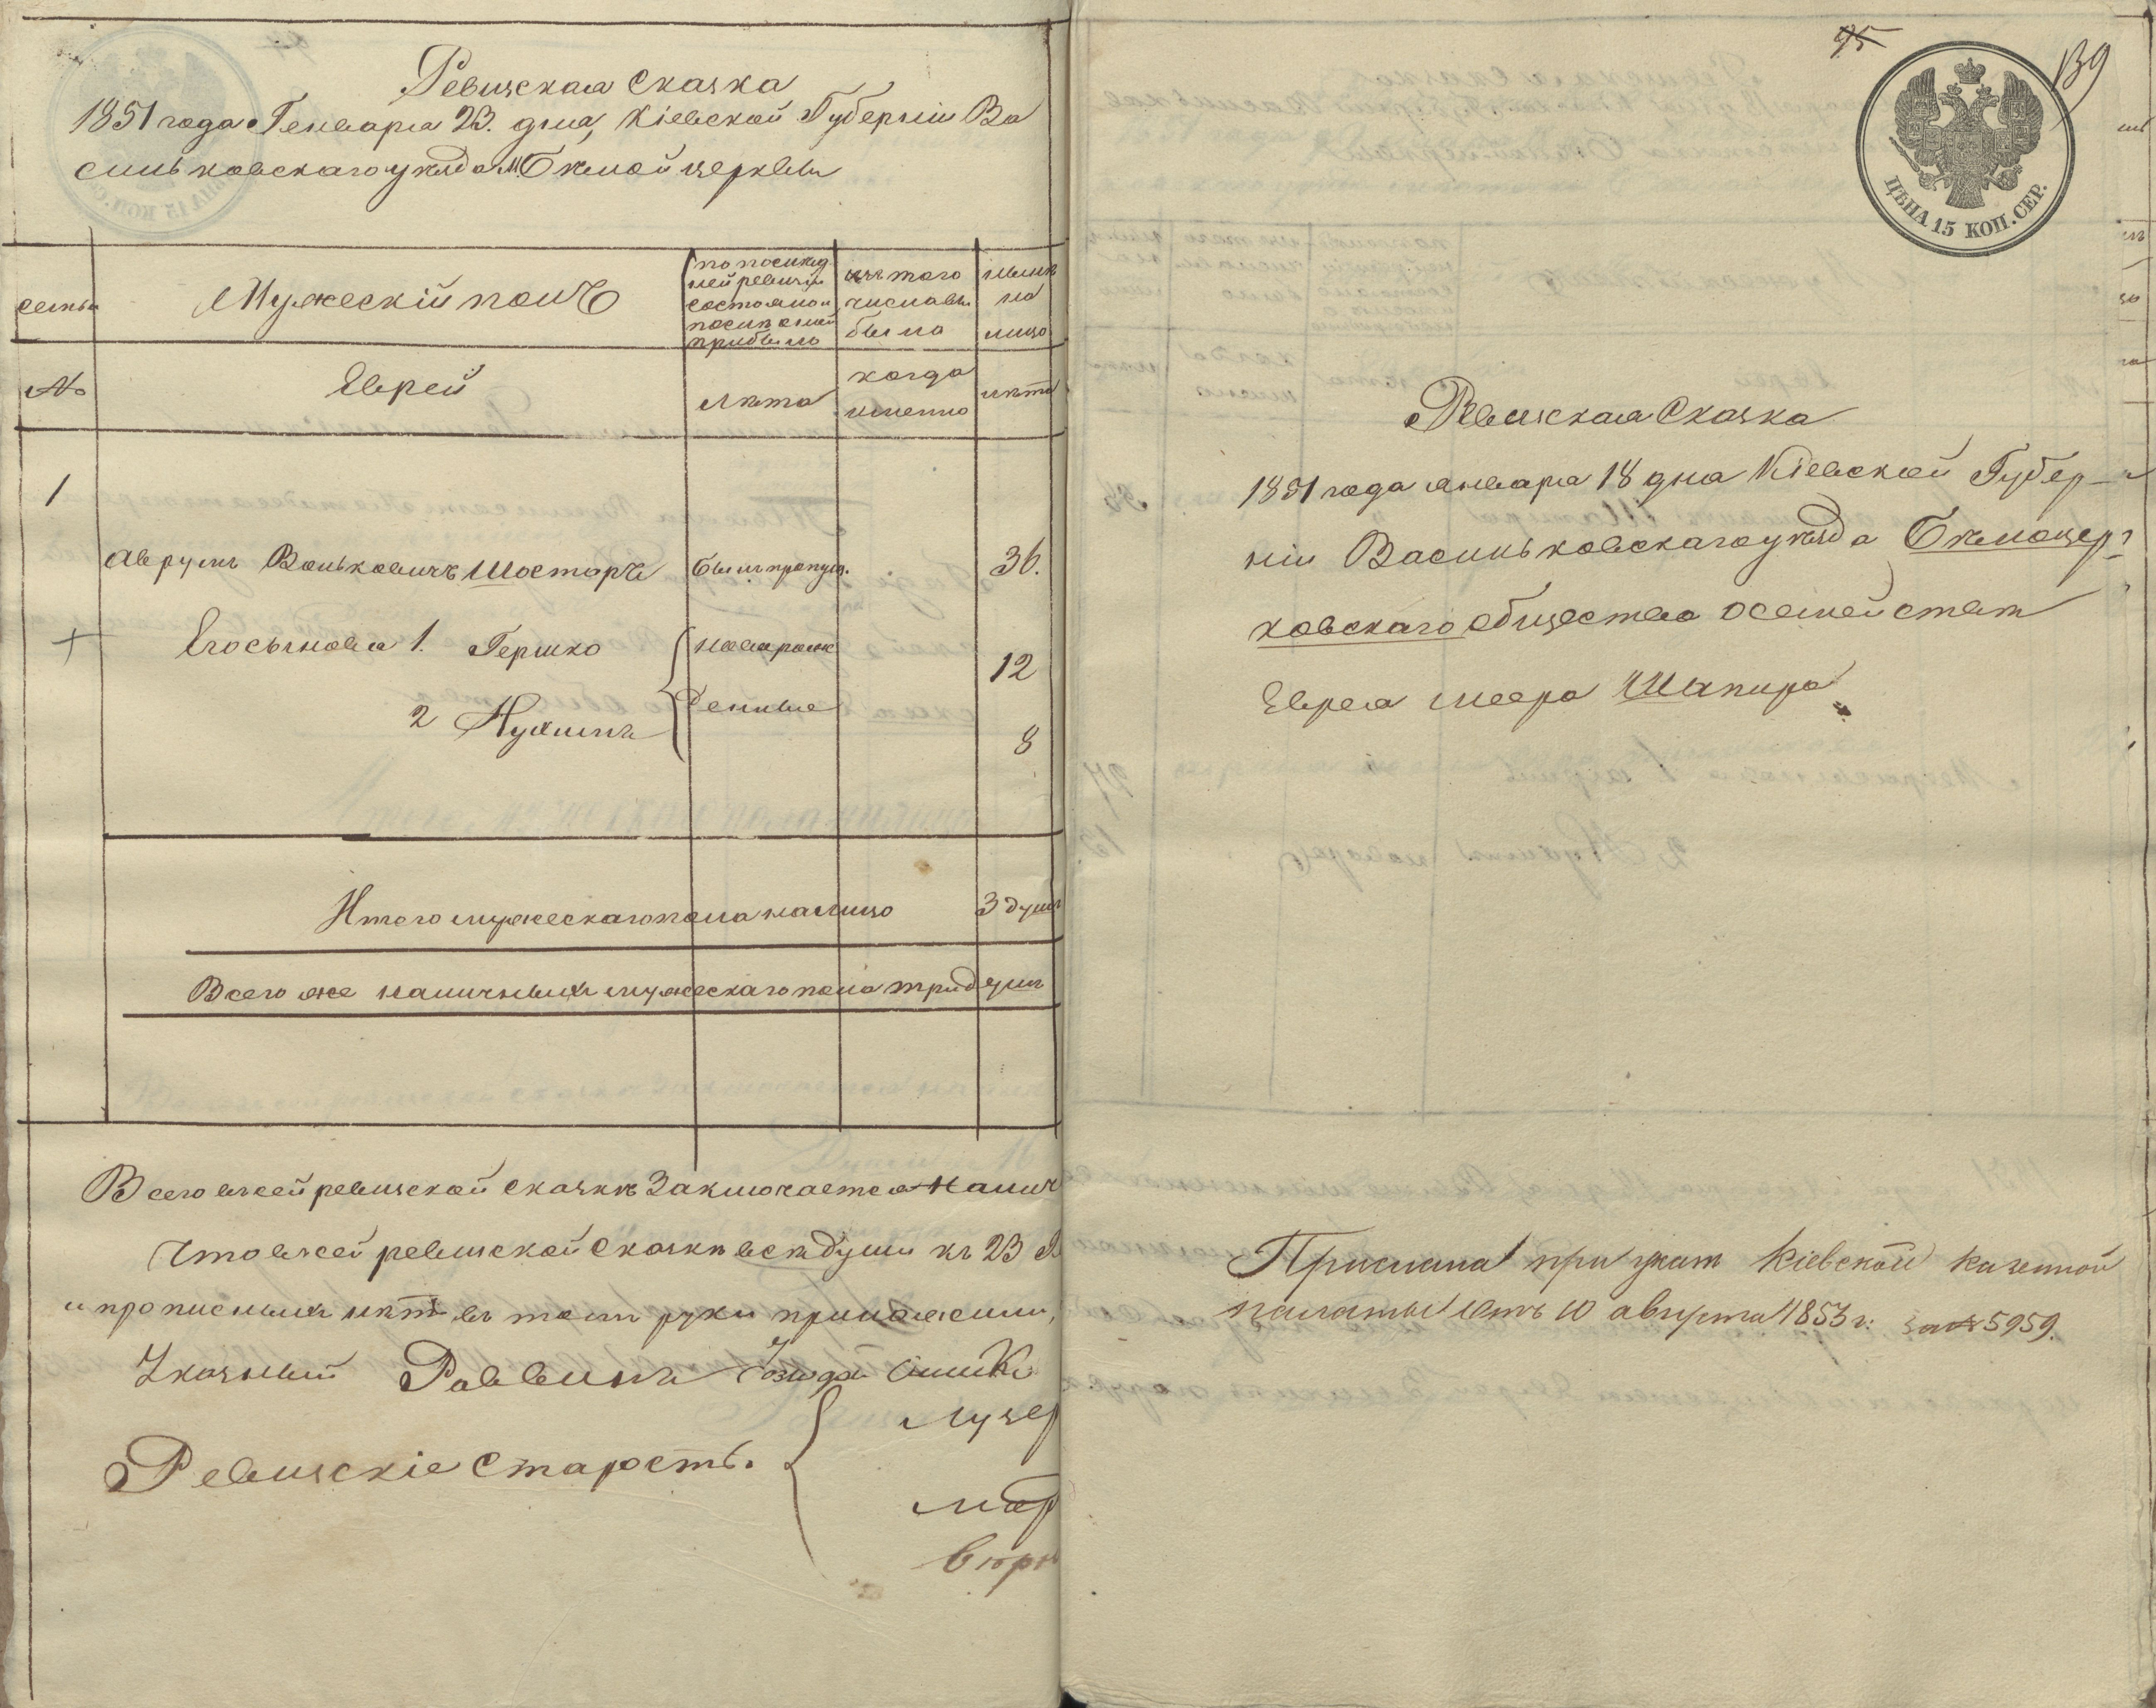 Ревизская Сказка
1851 года Генваря 23. дня, Кіевской Губерніи Ва
сильковскаго уѣзда м. Бѣлой церкви
семьи
Мужескій полъ
по послѣд
ней ревизіи
состояло и
послѣ оной
прибыло
изъ того
числа вы
было
нынѣ
на
лицо
№
Евреи
лѣта
когда
именно
лѣта
1
Аврумъ Вольковичъ Шостаръ
былъ пропущ.
36.
Его сыновья 1. Гершко
новорож
12
2 Нухимъ
денные
8
Итого мужескаго пола на лицо 3 душъ
Всего же наличныхъ мужескаго пола три душъ
Всего в сей ревизской сказкѣ Заключается налич
Что в сей ревизской Сказкѣ всѣ души къ 23
и прописныхъ нѣтъ въ томъ руки приложили,
Указный Раввинъ
Ревизскіе Старостъ.
Лузер
Мар
95
139
ЦѢНА 15 КОП. СЕР.
Ревизская Сказка
1851 года января 18 дня Кіевской Губер-
ніи Васильковскаго уѣзда Бѣлоцер-
ковскаго общества о семействѣ
Еврея Меера Шапира
Прислана при указѣ Кіевской Казенной
палаты отъ 10 августа 1853 г: за № 5959.